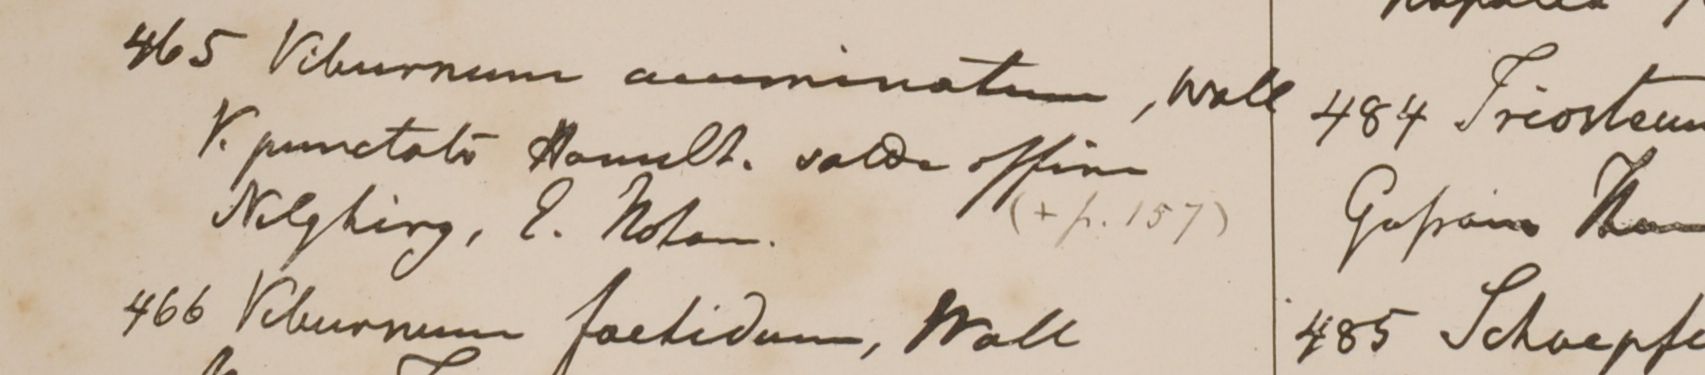 465 Viburnum acuminatum, Wall
V. punctato Hamilt. valde affine
Nilghiry, E. Noton.
(+ p. 157)
466 Viburnum foetidum, Wall
484 Triosteum
Gossain Than
485 Schoepf